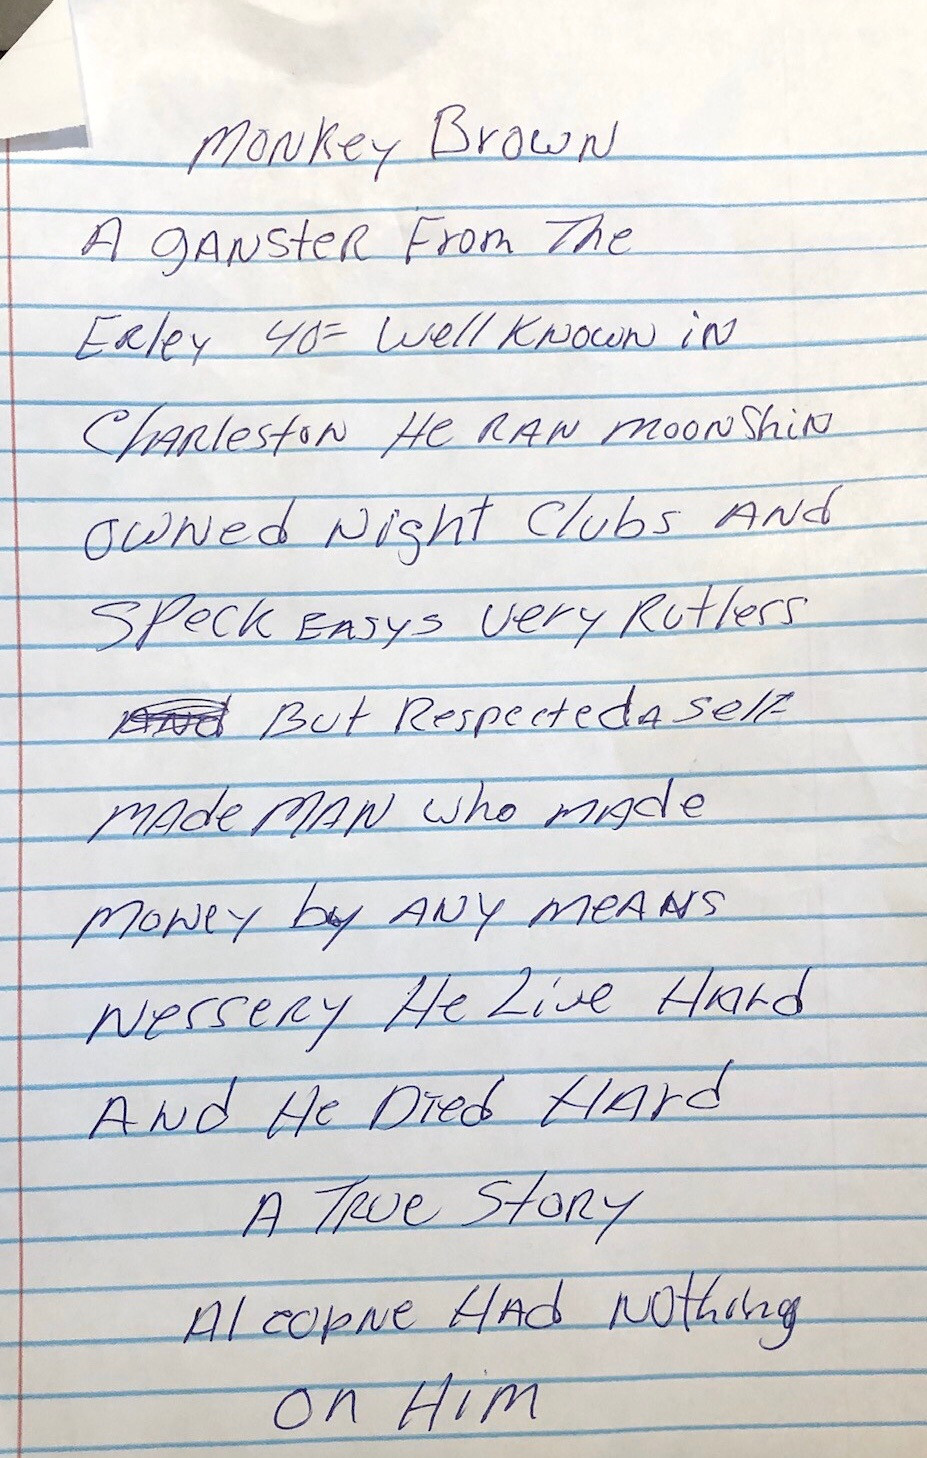 Monkey Brown
A gANSteR From The
Erley 40= Well Known iN
ChARlestoN He RAN mooNShiN
owNed Night Clubs ANd
SPeck EASyS Very Rutless
But Respected A Self
mAde MAN who made
moNey by ANY meANS
Nessery He Live HArd
ANd He Died HArd
A TRue StoRy
Al copNe HAd NOthing
on Him